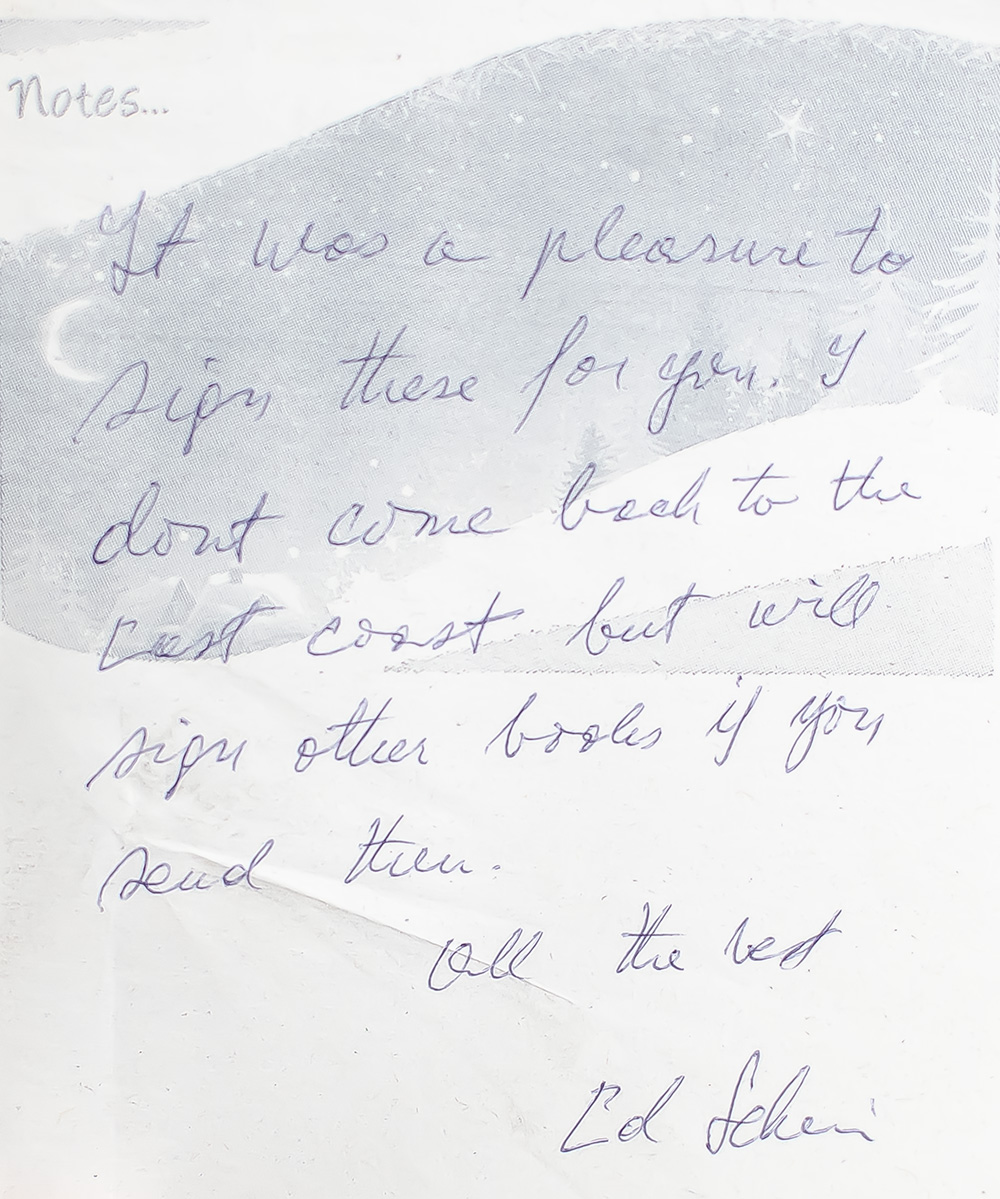 Notes...
It was a pleasure to
sign these for you. I
dont come back to the
East coast but will
sign other books if you
send them.
All the best
Ed